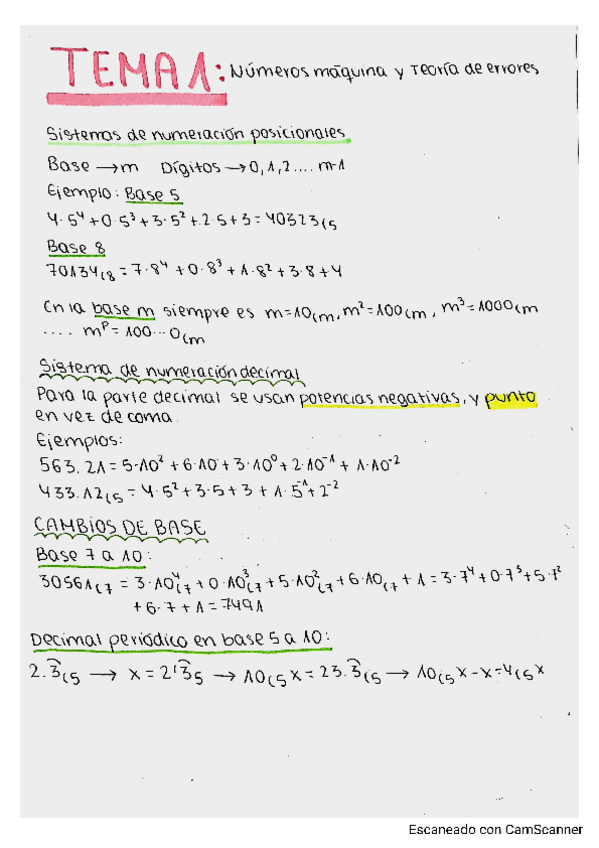 TEMA 1: Números máquina y Teoría de errores
Sistemas de numeración posicionales
Base → m Dígitos → 0, 1, 2.... m-1
Ejemplo: Base 5
4·5⁴+0·5³+3·5²+2·5+3=40323₍₅
Base 8
70134₍₈=7·8⁴+0·8³+1·8²+3·8+4
En la base m siempre es m=10₍m, m²=100₍m, m³=1000₍m
.... mᵖ=100...0₍m
Sistema de numeración decimal
Para la parte decimal se usan potencias negativas, y punto
en vez de coma.
Ejemplos:
563.21=5·10²+6·10+3·10⁰+2·10⁻¹+1·10⁻²
433.12₍₅=4·5²+3·5+3+1·5⁻¹+2⁻²
CAMBIOS DE BASE
Base 7 a 10:
30561₍₇=3·10⁴₍₇+0·10³₍₇+5·10²₍₇+6·10₍₇+1=3·7⁴+0·7³+5·7²
+6·7+1=7491
Decimal periódico en base 5 a 10:
2.3̂₍₅ → x=2'3̂₅ → 10₍₅x=23.3̂₍₅ → 10₍₅x-x=4₍₅x
Escaneado con CamScanner